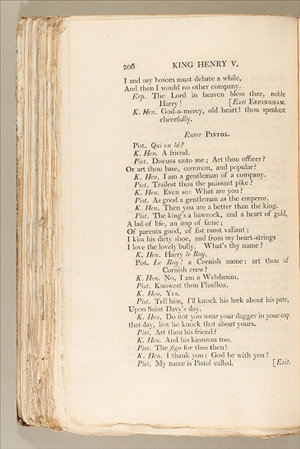 206 KING HENRY V.
I and my bosom must debate a while,
And then I would no other company.
Erp. The Lord in heaven bless thee, noble
Harry! [Exit ERPINGHAM.
K. Hen. God-a-mercy, old heart! thou speakest
cheerfully.
Enter PISTOL.
Pist. Qui va là?
K. Hen. A friend.
Pist. Discuss unto me; Art thou officer?
Or art thou base, common, and popular?
K. Hen. I am a gentleman of a company.
Pist. Trailest thou the puissant pike?
K. Hen. Even so: What are you?
Pist. As good a gentleman as the emperor.
K. Hen. Then you are a better than the king.
Pist. The king's a bawcock, and a heart of gold,
A lad of life, an imp of fame;
Of parents good, of fist most valiant:
I kiss his dirty shoe, and from my heart-strings
I love the lovely bully. What's thy name?
K. Hen. Harry le Roy.
Pist. Le Roy! a Cornish name: art thou of
Cornish crew?
K. Hen. No, I am a Welshman.
Pist. Knowest thou Fluellen?
K. Hen. Yes.
Pist. Tell him, I'll knock his leek about his pate,
Upon Saint Davy's day.
K. Hen. Do not you wear your dagger in your cap
that day, lest he knock that about yours.
Pist. Art thou his friend?
K. Hen. And his kinsman too.
Pist. The figo for thee then!
K. Hen. I thank you: God be with you!
Pist. My name is Pistol called. [Exit.